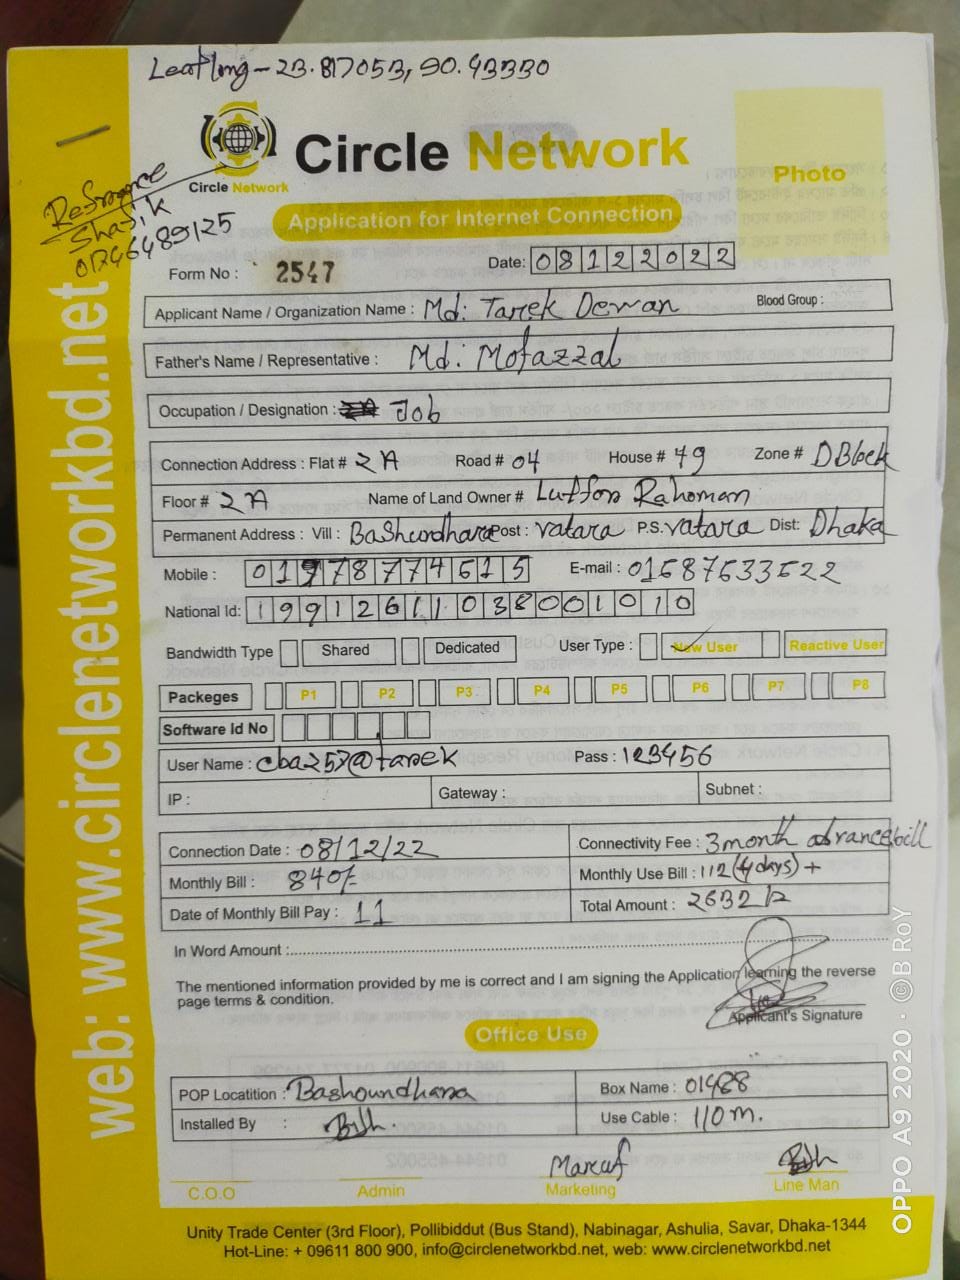 Leatlong - 23.817053, 90.43330
Circle Network
Circle Network
Photo
Application for Internet Connection
Refrance
Shafik
01746489125
Form No : 2547
Date: 08122022
Applicant Name / Organization Name : Md: Tarek Dewan Blood Group :
Father's Name / Representative : Md: Mofazzal
Occupation / Designation : Job
Connection Address : Flat # 2A Road # 04 House # 49 Zone # D Block
Floor # 2A Name of Land Owner # Lutfor Rahoman
Permanent Address : Vill : Bashundhara Post : vatara P.S. vatara Dist: Dhaka
Mobile : 01978774615 E-mail : 01687633622
National Id: 19912611038001010
Bandwidth Type Shared Dedicated User Type : New User Reactive User
Packeges P1 P2 P3 P4 P5 P6 P7 P8
Software Id No
User Name : cba257@tarek Pass : 123456
IP : Gateway : Subnet :
Connection Date : 08/12/22 Connectivity Fee : 3 month advance bill
Monthly Bill : 840/- Monthly Use Bill : 112 (4 days) +
Date of Monthly Bill Pay : 11 Total Amount : 2632
In Word Amount :
The mentioned information provided by me is correct and I am signing the Application learning the reverse
page terms & condition.
Applicant's Signature
Office Use
POP Locatition : Bashoundhara Box Name : 01488
Installed By : Use Cable : 110 m.
Maruf
C.O.O Admin Marketing Line Man
Unity Trade Center (3rd Floor), Pollibiddut (Bus Stand), Nabinagar, Ashulia, Savar, Dhaka-1344
Hot-Line: + 09611 800 900, info@circlenetworkbd.net, web: www.circlenetworkbd.net
web: www.circlenetworkbd.net
OPPO A9 2020 · ©B RoY